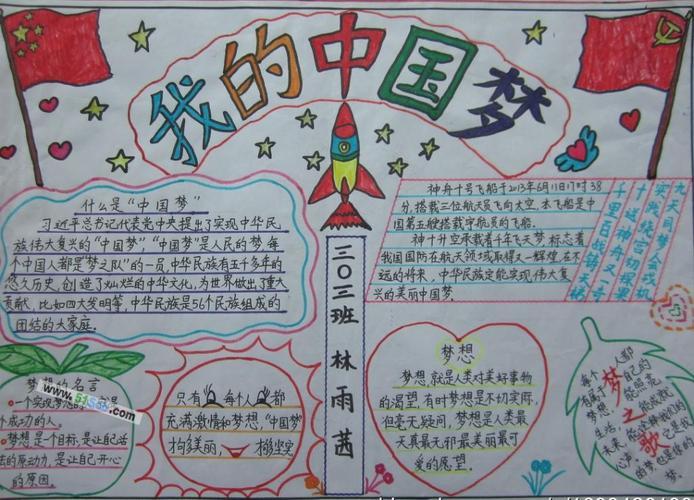 我的中国梦
什么是“中国梦”
习近平总书记代表党中央提出了实现中华民
族伟大复兴的“中国梦”“中国梦”是人民的梦,每
个中国人都是“梦之队”的一员,中华民族有五千多年的
悠久历史,创造了灿烂的中华文化,为世界做出了重大
贡献,比如四大发明等,中华民族是56个民族组成的
团结的大家庭.
神舟十号飞船于2013年6月11日17时38
分,搭载三位航天员飞向太空.本飞船是中
国第五艘搭载宇航员的飞船.
神十升空承载者千年飞天梦,标志着
我国国防在航天领域取得又一辉煌,在不
远的将来,中华民族定能实现伟大复
兴的美丽中国梦.
九天同梦会战机
实践绕宫切探果
十送神舟又一奇
千里百战铸天梯
三〇三班 林雨茜
梦想的名言
一个实现梦想的
个成功的人.
梦想是一个目标,是让自己活
的原动力,是让自己开心
的原因.
www.51
.com
只有 每个人 都
充满激情和梦想,“中国梦”
构美丽,
梦想
梦想,就是人类对美好事物
的渴望,有时梦想是不切实际,
但毫无疑问,梦想是人类最
天真最无邪最美丽最可
爱的愿望.
梦之歌
每个人都
有属于自己的
梦想
生活
未来
心声
梦.